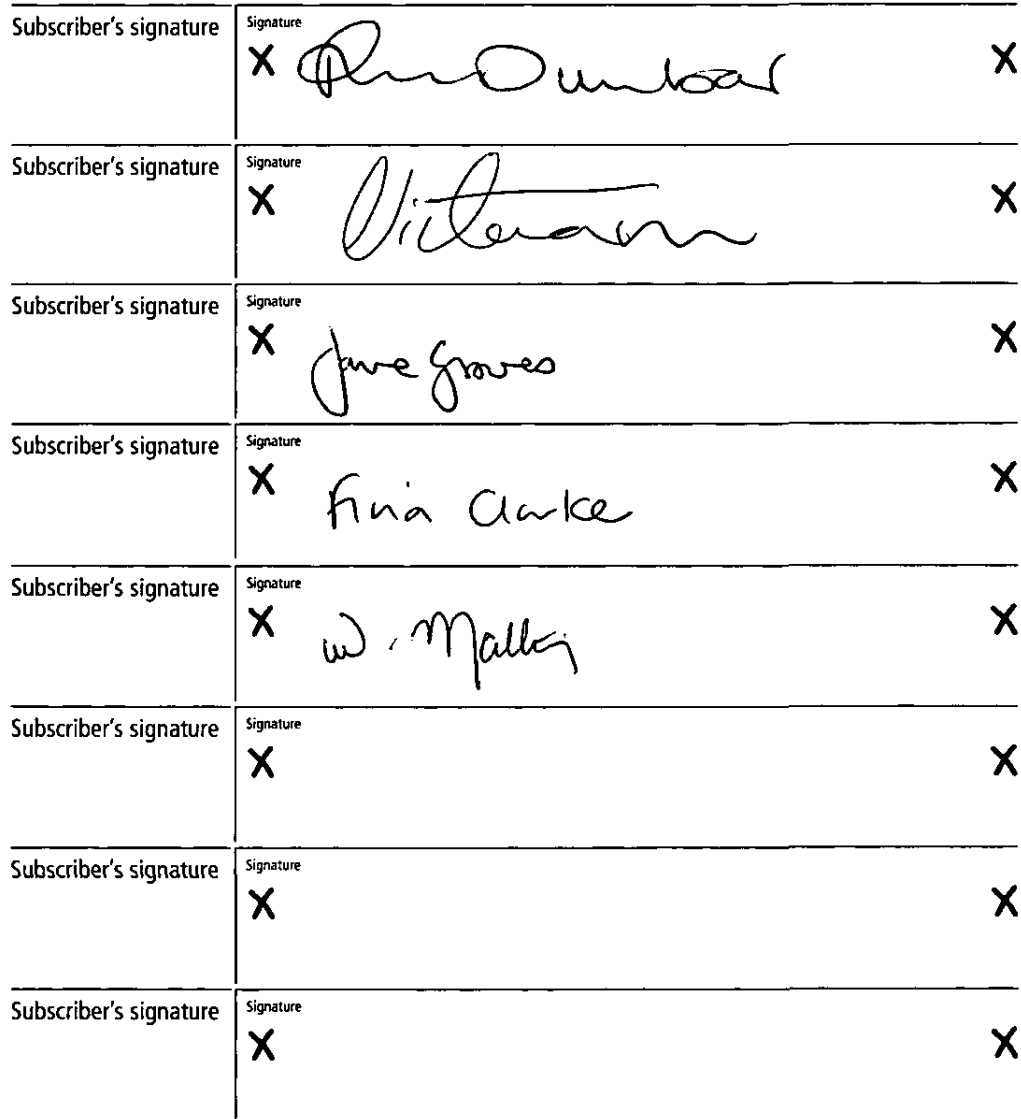 Subscriber's signature Signature
X Dunbar X
Subscriber's signature Signature
X X
Subscriber's signature Signature
X Jane Groves X
Subscriber's signature Signature
X Clarke X
Subscriber's signature Signature
X W. X
Subscriber's signature Signature
X X
Subscriber's signature Signature
X X
Subscriber's signature Signature
X X